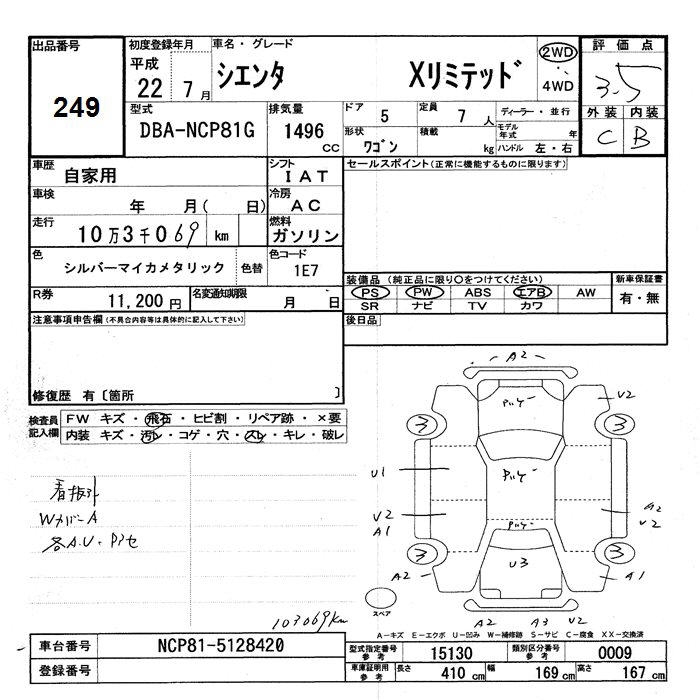 出品番号
249
初度登録年月
平成
22 7月
車名・グレード
シエンタ Xリミテッド
2WD
4WD
評価点
3.5
外装 内装
C B
型式
DBA-NCP81G
排気量
1496
cc
ドア 5
定員 7人
形状 ワゴン
積載 kg
ディーラー・並行
モデル年式 年
ハンドル 左・右
車歴 自家用
シフト IAT
車検 年 月( 日)
冷房 AC
走行 10万3千069 km
燃料 ガソリン
色 シルバーマイカメタリック 色替
色コード 1E7
R券 11,200円
名変通知期限 月 日
セールスポイント(正常に機能するものに限ります)
装備品 (純正品に限り〇をつけてください)
PS PW ABS エアB AW
SR ナビ TV カワ
新車保証書
有・無
後日品
注意事項申告欄(不具合内容等は具体的に記入して下さい)
修復歴 有〔箇所 〕
検査員記入欄
FW キズ・飛石・ヒビ割・リペア跡・×要
内装 キズ・汚レ・コゲ・穴・スレ・キレ・破レ
A2
U2
3 3
U1
U2
A1
A2
U2
U3
3 3
A2
A1
スペア
A2 A3 U2
103069km
A-キズ E-エクボ U-凹み W-補修跡 S-サビ C-腐食 XX-交換済
車台番号 NCP81-5128420
登録番号
型式指定番号 参考 15130
類別区分番号 参考 0009
車庫証明用 参考 長さ 410 cm 幅 169 cm 高さ 167 cm